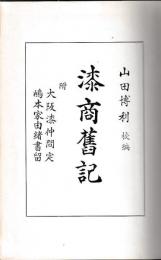 山田博利 校編
漆商舊記
附
大阪漆仲間定
嶋本家由緒書留